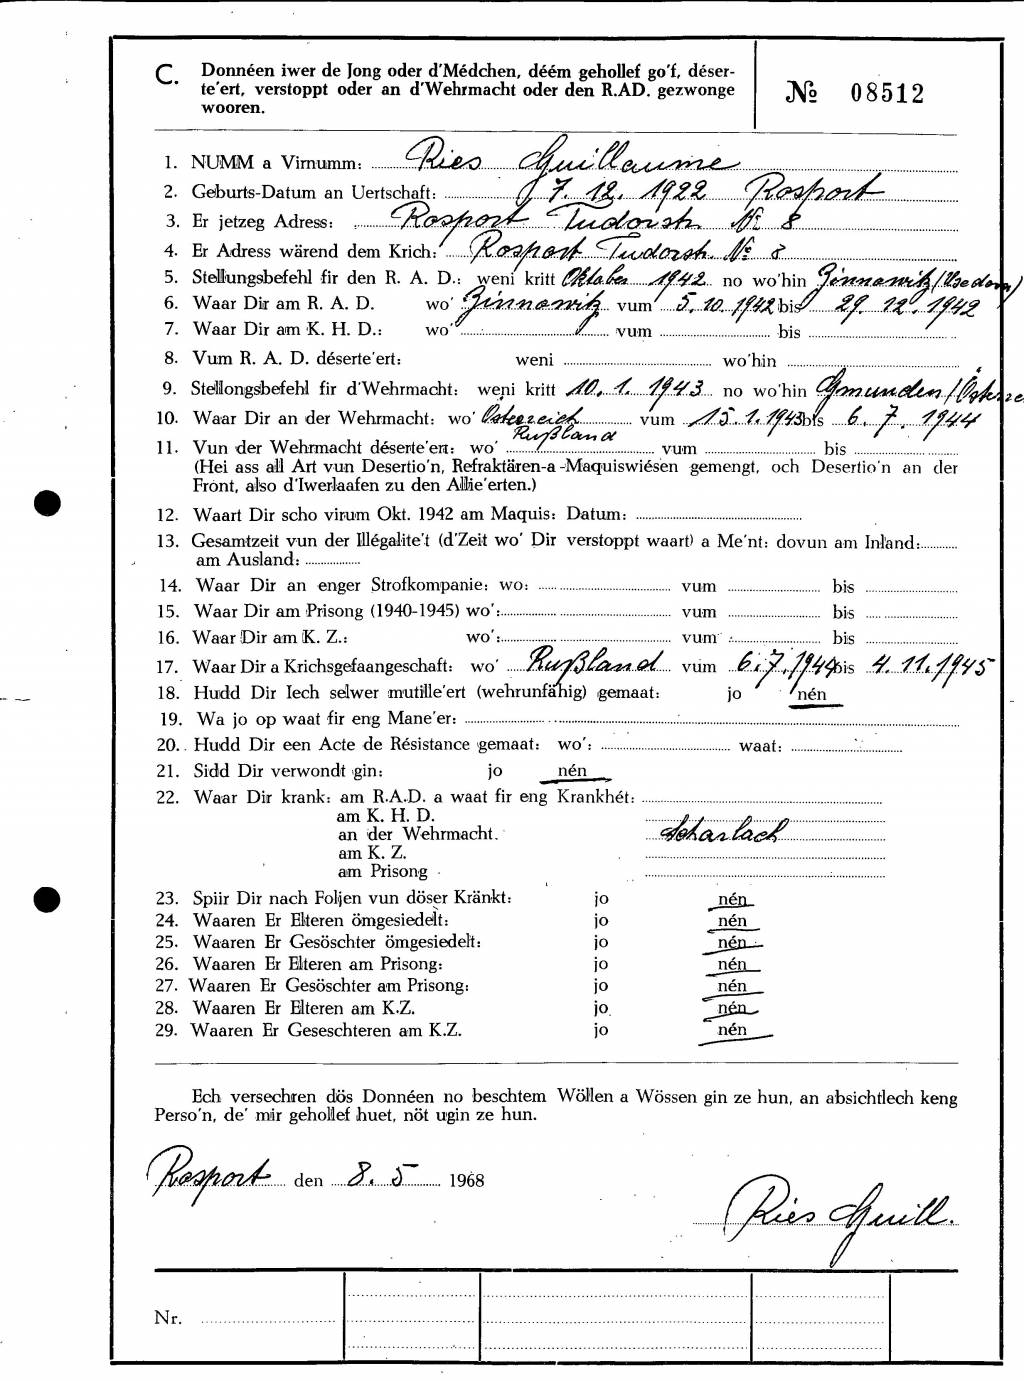 C. Donnéen iwer de Jong oder d'Médchen, déém gehollef go'f, déser-
te'ert, verstoppt oder an d'Wehrmacht oder den R.AD. gezwonge
wooren.
№ 08512
1. NUMM a Virnumm: Ries Guillaume
2. Geburts-Datum an Uertschaft: 7. 12. 1922 Rosport
3. Er jetzeg Adress: Rosport Tudorstr. Nr 8
4. Er Adress wärend dem Krich: Rosport Tudorstr. № 8
5. Stellungsbefehl fir den R. A. D.: weni kritt Oktober 1942 no wo'hin Zinnowitz/Usedom)
6. Waar Dir am R. A. D. wo' Zinnowitz vum 5. 10. 1942 bis 29. 12. 1942
7. Waar Dir am K. H. D.: wo' vum bis
8. Vum R. A. D. déserte'ert: weni wo'hin
9. Stellongsbefehl fir d'Wehrmacht: weni kritt 10. 1. 1943 no wo'hin Gmunden/Österre
10. Waar Dir an der Wehrmacht: wo' Österreich vum 15. 1. 1943 bis 6. 7. 1944
Rußland
11. Vun der Wehrmacht déserte'ert: wo' vum bis
(Hei ass all Art vun Desertio'n, Refraktären-a-Maquiswiésen gemengt, och Desertio'n an der
Front, also d'Iwerlaafen zu den Allie'erten.)
12. Waart Dir scho virum Okt. 1942 am Maquis: Datum:
13. Gesamtzeit vun der Illégalite't (d'Zeit wo' Dir verstoppt waart) a Me'nt: dovun am Inland:
am Ausland:
14. Waar Dir an enger Strofkompanie: wo: vum bis
15. Waar Dir am Prisong (1940-1945) wo': vum bis
16. Waar Dir am K. Z.: wo': vum bis
17. Waar Dir a Krichsgefaangeschaft: wo' Rußland vum 6. 7. 1944 bis 4. 11. 1945
18. Hudd Dir Iech selwer mutille'ert (wehrunfähig) gemaat: jo nén
19. Wa jo op waat fir eng Mane'er:
20. Hudd Dir een Acte de Résistance gemaat: wo': waat:
21. Sidd Dir verwondt gin: jo nén
22. Waar Dir krank: am R.A.D. a waat fir eng Krankhét:
am K. H. D.
an der Wehrmacht. Scharlach
am K. Z.
am Prisong
23. Spiir Dir nach Foljen vun döser Kränkt: jo nén
24. Waaren Er Elteren ömgesiedelt: jo nén
25. Waaren Er Gesöschter ömgesiedelt: jo nén
26. Waaren Er Elteren am Prisong: jo nén
27. Waaren Er Gesöschter am Prisong: jo nén
28. Waaren Er Elteren am K.Z. jo nén
29. Waaren Er Geseschteren am K.Z. jo nén
Ech versechren dös Donnéen no beschtem Wöllen a Wössen gin ze hun, an absichtlech keng
Perso'n, de' mir gehollef huet, nöt ugin ze hun.
Rosport den 8. 5 1968
Ries Guill.
Nr.